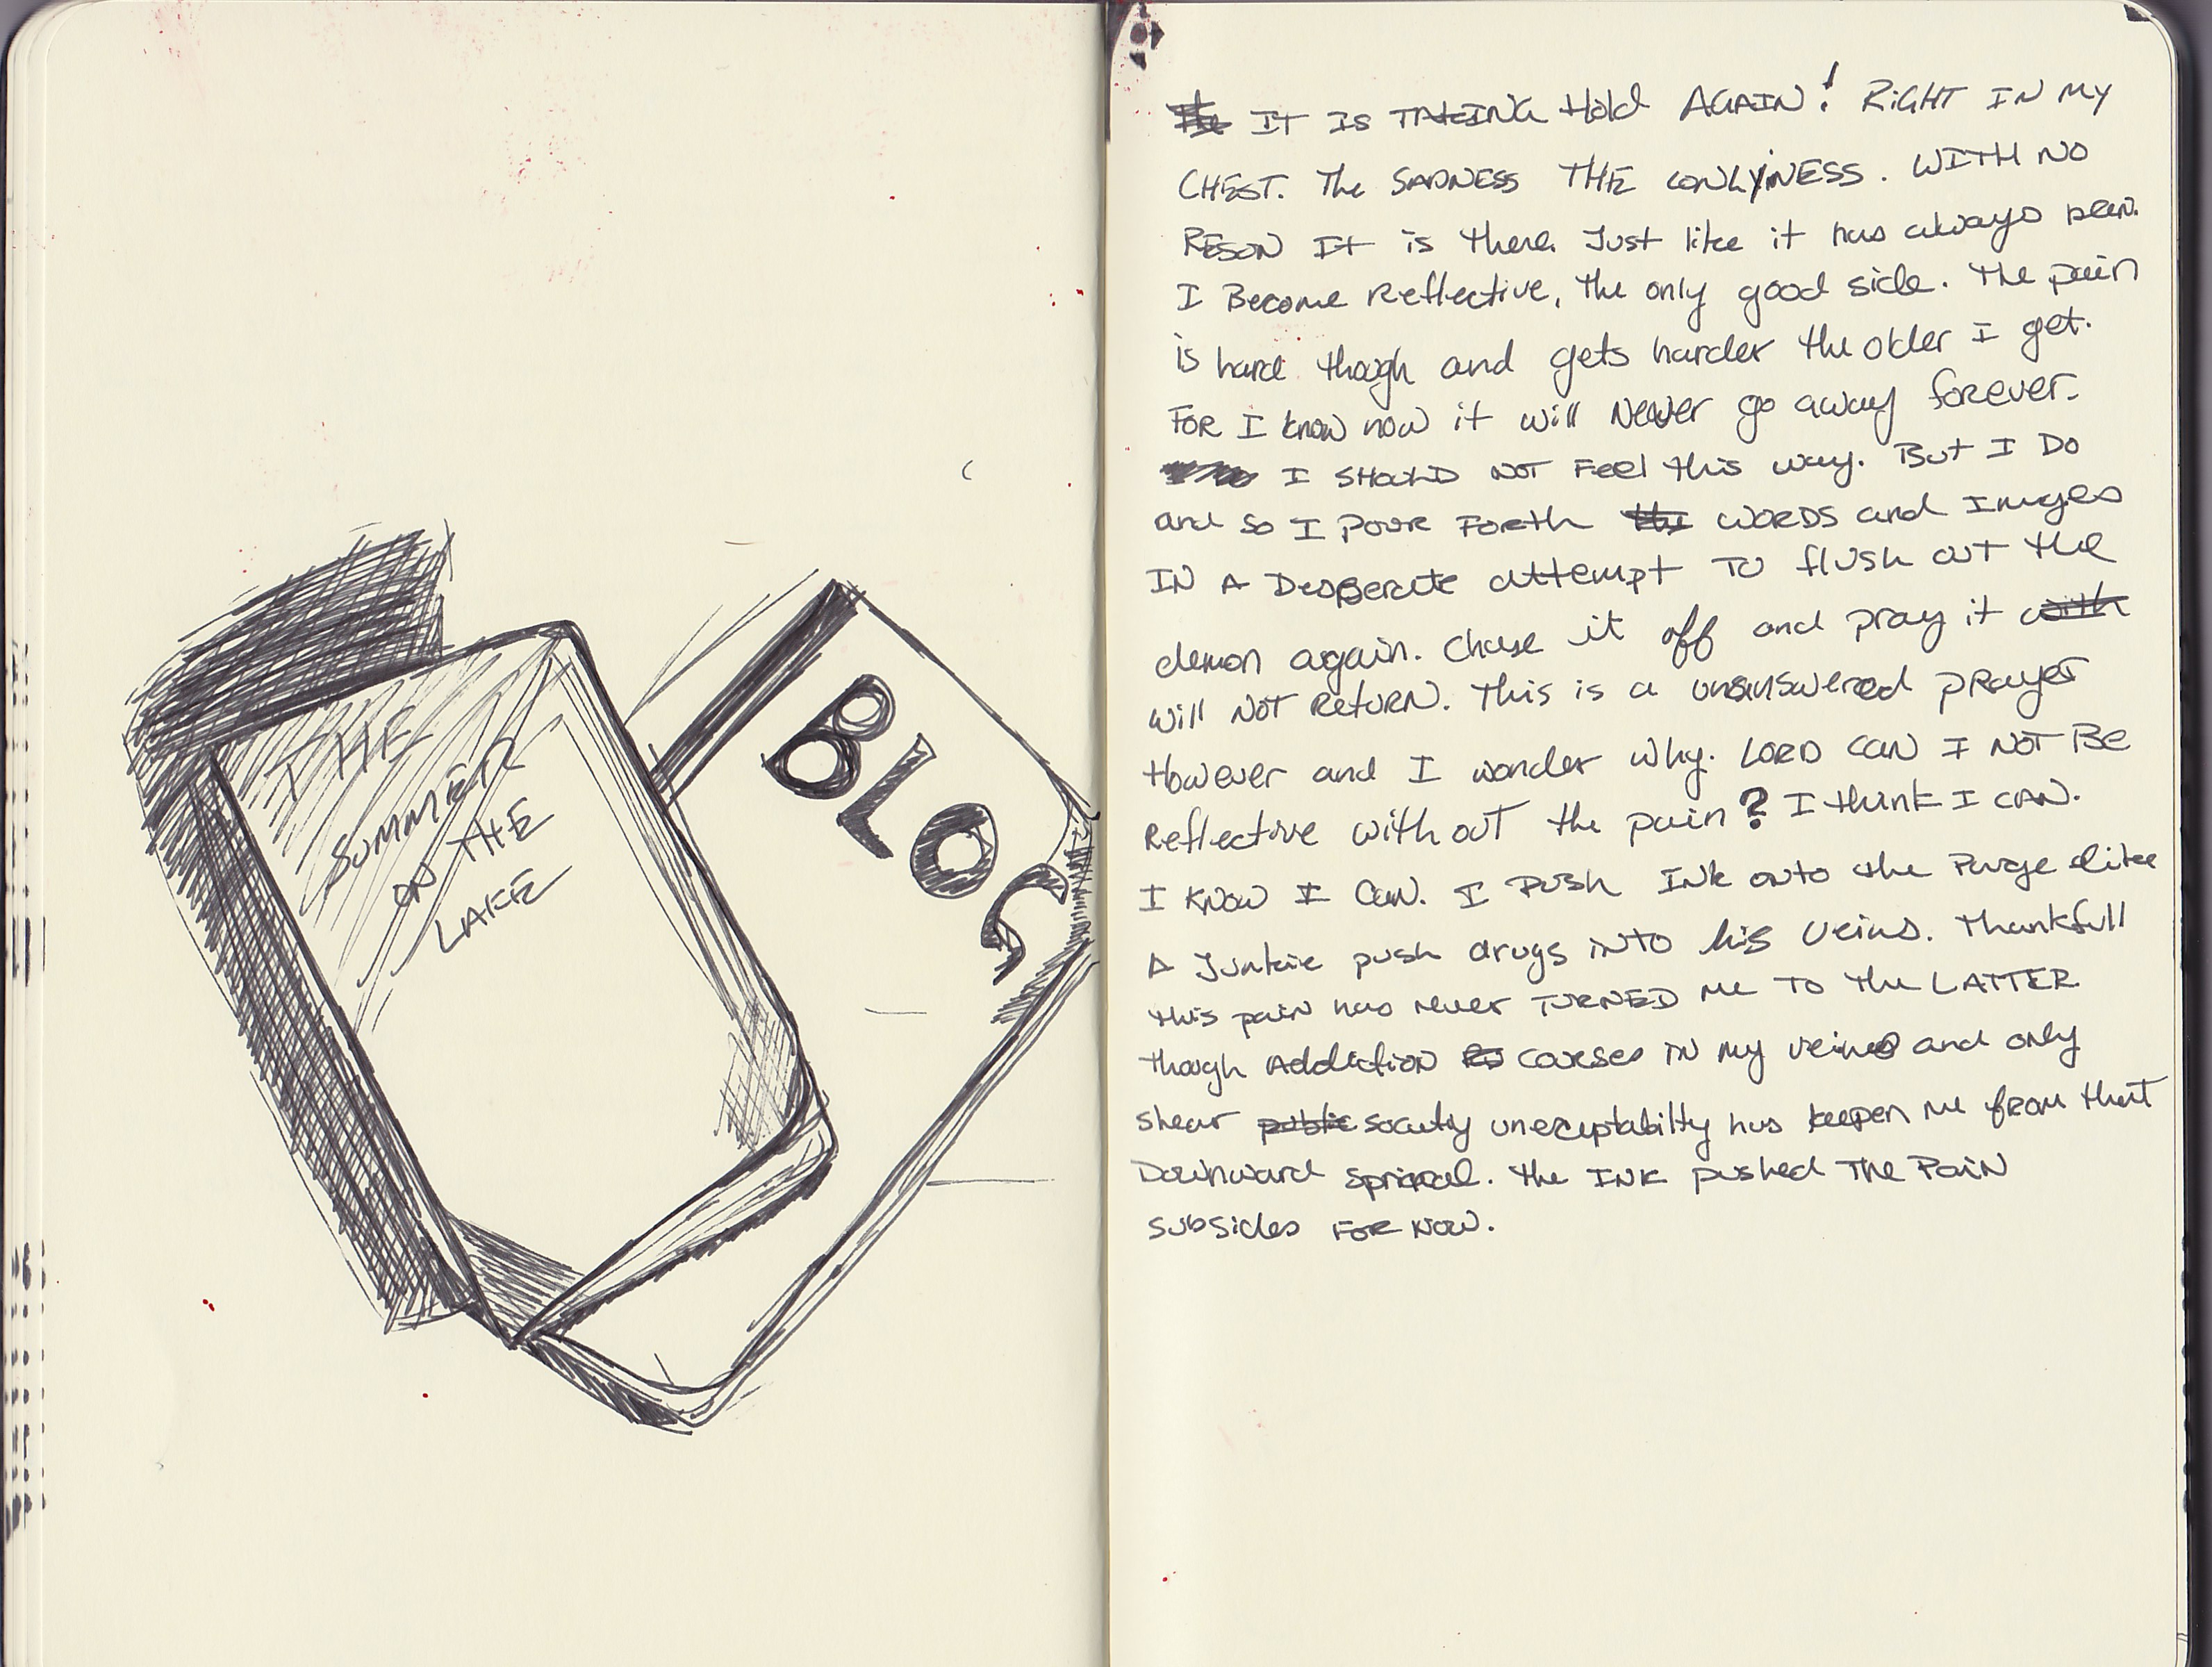 THE
SUMMER
ON THE
LAKE
BLOG
IT IS TAKING Hold AGAIN! RIGHT IN MY
CHEST. The SADNESS THE LONLYiNESS. WITH NO
RESON It is there. Just like it has always been.
I Become Reflective, the only good side. The pain
is hard though and gets harder the older I get.
FOR I know now it will Never go away forever.
I SHOULD NOT Feel this way. But I Do
and so I POUR FORTH the WORDS and Images
IN A Desperate attempt TO flush out the
demon again. Chase it off and pray it with
will NOT Return. This is a unanswered prayer
However and I wonder why. LORD CAN I NOT Be
Reflective without the pain? I think I CAN.
I KNOW I CAN. I PUSH INK onto the Page like
A Junkie push drugs into his Veins. Thankfull
this pain has never TURNED me TO the LATTER
though Addiction courses in my veins and only
shear public society uneceptabilty has keepen me from that
Downward Sprial. The INK pushed The PaiN
subsides FOR NOW.